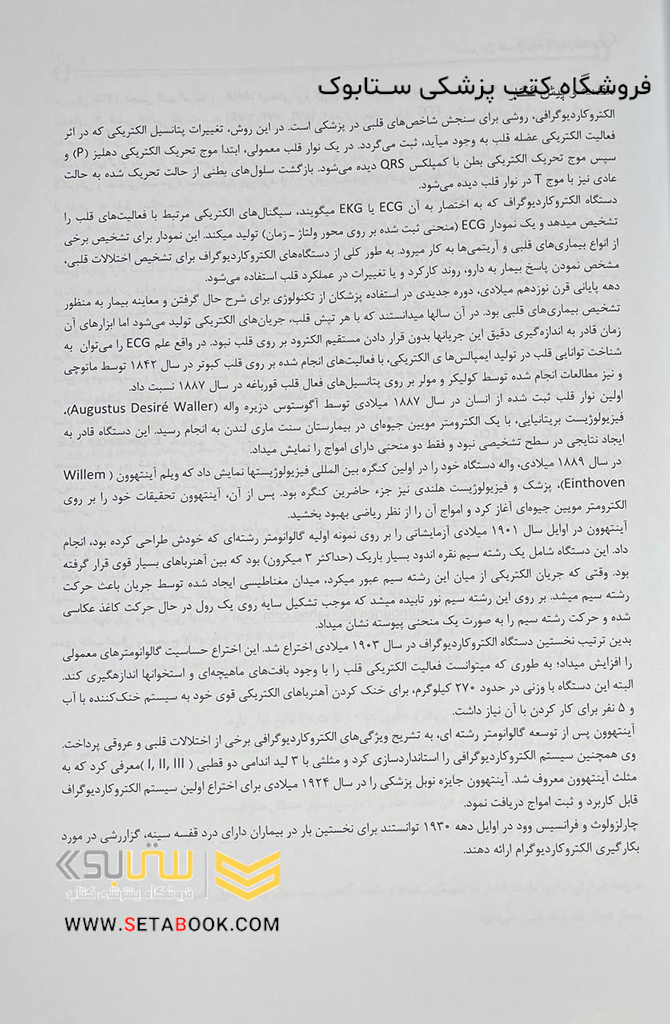 فروشگاه کتب پزشکی ستابوک
الکتروکاردیوگرافی، روشی برای سنجش شاخص‌های قلبی در پزشکی است. در این روش، تغییرات پتانسیل الکتریکی که در اثر
فعالیت الکتریکی عضله قلب به وجود می‌آید، ثبت می‌گردد. در یک نوار قلب معمولی، ابتدا موج تحریک الکتریکی دهلیز (P) و
سپس موج تحریک الکتریکی بطن با کمپلکس QRS دیده می‌شود. بازگشت سلول‌های بطنی از حالت تحریک شده به حالت
عادی نیز با موج T در نوار قلب دیده می‌شود.
دستگاه الکتروکاردیوگراف که به اختصار به آن ECG یا EKG میگویند، سیگنال‌های الکتریکی مرتبط با فعالیت‌های قلب را
تشخیص میدهد و یک نمودار ECG (منحنی ثبت شده بر روی محور ولتاژ ـ زمان) تولید میکند. این نمودار برای تشخیص برخی
از انواع بیماری‌های قلبی و آریتمی‌ها به کار میرود. به طور کلی از دستگاه‌های الکتروکاردیوگراف برای تشخیص اختلالات قلبی،
مشخص نمودن پاسخ بیمار به دارو، روند کارکرد و یا تغییرات در عملکرد قلب استفاده می‌شود.
دهه پایانی قرن نوزدهم میلادی، دوره جدیدی در استفاده پزشکان از تکنولوژی برای شرح حال گرفتن و معاینه بیمار به منظور
تشخیص بیماری‌های قلبی بود. در آن سالها میدانستند که با هر تپش قلب، جریان‌های الکتریکی تولید می‌شود اما ابزارهای آن
زمان قادر به اندازه‌گیری دقیق این جریانها بدون قرار دادن مستقیم الکترود بر روی قلب نبود. در واقع علم ECG را می‌توان به
شناخت توانایی قلب در تولید ایمپالس‌ها ی الکتریکی، با فعالیت‌های انجام شده بر روی قلب کبوتر در سال ۱۸۴۲ توسط ماتوچی
و نیز مطالعات انجام شده توسط کولیکر و مولر بر روی پتانسیل‌های فعال قلب قورباغه در سال ۱۸۸۷ نسبت داد.
اولین نوار قلب ثبت شده از انسان در سال ۱۸۸۷ میلادی توسط آگوستوس دزیره واله (Augustus Desiré Waller)،
فیزیولوژیست بریتانیایی، با یک الکترومتر مویین جیوه‌ای در بیمارستان سنت ماری لندن به انجام رسید. این دستگاه قادر به
ایجاد نتایجی در سطح تشخیصی نبود و فقط دو منحنی دارای امواج را نمایش میداد.
در سال ۱۸۸۹ میلادی، واله دستگاه خود را در اولین کنگره بین المللی فیزیولوژیستها نمایش داد که ویلم آینتهوون ( Willem
Einthoven)، پزشک و فیزیولوژیست هلندی نیز جزء حاضرین کنگره بود. پس از آن، آینتهوون تحقیقات خود را بر روی
الکترومتر مویین جیوه‌ای آغاز کرد و امواج آن را از نظر ریاضی بهبود بخشید.
آینتهوون در اوایل سال ۱۹۰۱ میلادی آزمایشاتی را بر روی نمونه اولیه گالوانومتر رشته‌ای که خودش طراحی کرده بود، انجام
داد. این دستگاه شامل یک رشته سیم نقره اندود بسیار باریک (حداکثر ۳ میکرون) بود که بین آهنرباهای بسیار قوی قرار گرفته
بود. وقتی که جریان الکتریکی از میان این رشته سیم عبور میکرد، میدان مغناطیسی ایجاد شده توسط جریان باعث حرکت
رشته سیم میشد. بر روی این رشته سیم نور تابیده میشد که موجب تشکیل سایه روی یک رول در حال حرکت کاغذ عکاسی
شده و حرکت رشته سیم را به صورت یک منحنی پیوسته نشان میداد.
بدین ترتیب نخستین دستگاه الکتروکاردیوگراف در سال ۱۹۰۳ میلادی اختراع شد. این اختراع حساسیت گالوانومترهای معمولی
را افزایش میداد؛ به طوری که میتوانست فعالیت الکتریکی قلب را با وجود بافت‌های ماهیچه‌ای و استخوانها اندازهگیری کند.
البته این دستگاه با وزنی در حدود ۲۷۰ کیلوگرم، برای خنک کردن آهنرباهای الکتریکی قوی خود به سیستم خنک‌کننده با آب
و ۵ نفر برای کار کردن با آن نیاز داشت.
آینتهوون پس از توسعه گالوانومتر رشته ای، به تشریح ویژگی‌های الکتروکاردیوگرافی برخی از اختلالات قلبی و عروقی پرداخت.
وی همچنین سیستم الکتروکاردیوگرافی را استانداردسازی کرد و مثلثی با ۳ لید اندامی دو قطبی ( I, II, III )معرفی کرد که به
مثلث آینتهوون معروف شد. آینتهوون جایزه نوبل پزشکی را در سال ۱۹۲۴ میلادی برای اختراع اولین سیستم الکتروکاردیوگراف
قابل کاربرد و ثبت امواج دریافت نمود.
چارلزولوث و فرانسیس وود در اوایل دهه ۱۹۳۰ توانستند برای نخستین بار در بیماران دارای درد قفسه سینه، گزاررشی در مورد
بکارگیری الکتروکاردیوگرام ارائه دهند.
ستابوک
فروشگاه اینترنتی کتاب
WWW.SETABOOK.COM